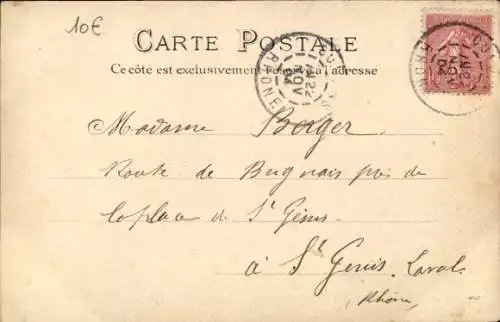 10€
CARTE POSTALE
Ce côté est exclusivement réservé à l'adresse
RHONE
22
NOV
04
RHONE
Madame Berger
Route de Brignais près de
la place de St Genis
à St Genis Laval
Rhône